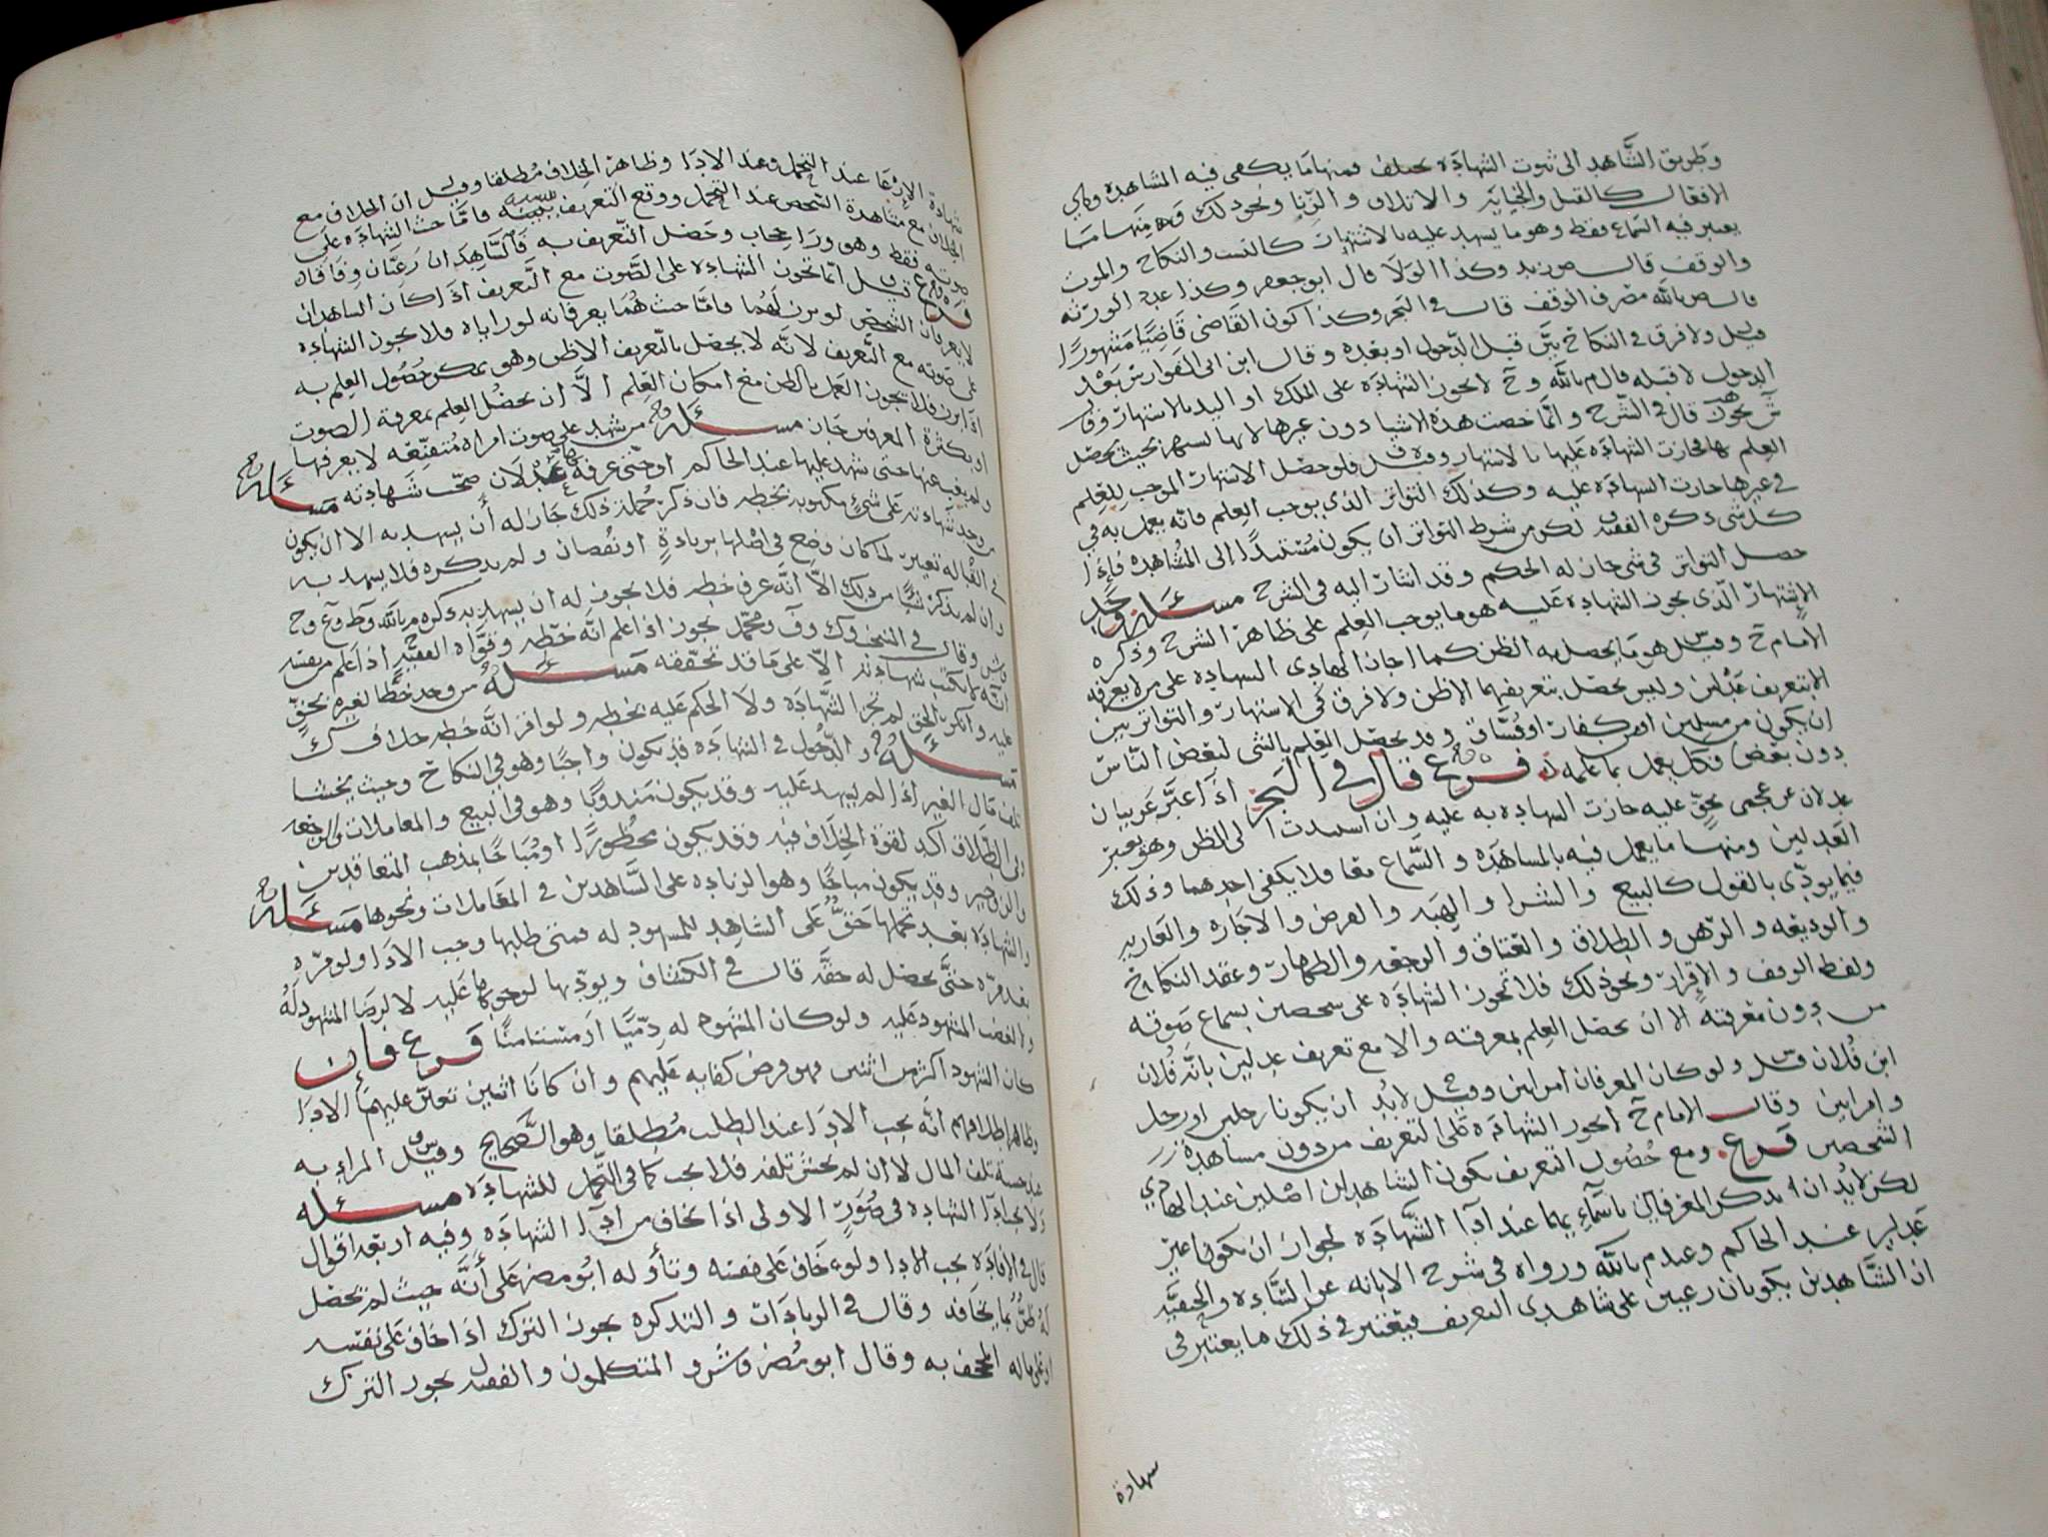 وطريق الشاهد الى ثبوت الشهادة يختلف فمنها ما يكفي فيه المشاهدة وهي
الافعال كالقتل والجناية والاتلاف والزنا ونحو ذلك ومنها ما
يعتبر فيه السماع فقط وهو ما يشهد عليه بالاشتهار كالنسب والنكاح والموت
والوقف قال ص زيد وكذا الولا قال ابو جعفر وكذا عدد الورثة
قال ص بالله مصرف الوقف قال في البحر وكذا كون القاضي قاضيا مشهورا
وقيل ولا فرق في النكاح بين قبل الدخول او بعده وقال ابن ابي الفوارس بعد
الدخول لا قبله قال م بالله و ح لا يجوز الشهادة على الملك او اليد بالاشتهار وقال
يجوز قال في الشرح وانما خصت هذه الاشيا دون غيرها لانها تشتهر بحيث يحصل
العلم بها فجازت الشهادة عليها بالاشتهار وقيل فلو حصل الاشتهار الموجب للعلم
في غيرها جازت الشهادة عليه وكذلك التواتر الذي يوجب العلم فانه يعمل به في
كل شي ذكره الفقيه لكن من شرط التواتر ان يكون مستندا الى المشاهدة فاذا
حصل التواتر في شي جاز له الحكم وقد اشار اليه في الشرح مسئلة وحد
الاشتهار الذي يجوز الشهادة عليه هو ما يوجب العلم على ظاهر الشرح وذكره
الامام ح وقيل هو ما يحصل به الظن كما اجاز الهادي الشهادة على من لا يعرفه
الا بتعريف عدلين وليس يحصل بتعريفهما الا ظن ولا فرق في الاشتهار والتواتر بين
ان يكون من مسلمين او من كفار او فساق وقد يحصل العلم بالشي لبعض الناس
دون بعض فكل يعمل بما علمه فرع قال في البحر اذا عبر عربيان
عدلان عن عجمي بحق عليه جازت الشهادة به عليه وان استندت الى الظن وهو تعبير
العدلين ومنها ما يعمل فيه بالمشاهدة والسماع معا فلا يكفي احدهما وذلك
فيما يودى بالقول كالبيع والشرا والهبة والقرض والاجارة والعارية
والوديعة والرهن والطلاق والعتاق والرجعة والظهار وعقد النكاح
ولفظ الوقف والاقرار ونحو ذلك فلا تجوز الشهادة على شخصين بسماع صوته
من دون معرفته الا ان يحصل العلم بمعرفته والا مع تعريف عدلين بانه فلان
ابن فلان قيل ولو كان المعرفان امراتين وقيل لا بد ان يكونا رجلين او رجل
وامراتين وقال الامام ح لا يجوز الشهادة على التعريف من دون مشاهدة
الشخصين فرع ومع حصول التعريف يكون الشاهدان اصلين عند الهادي
لكن لا بد ان يذكر المعرفان باسمائهما عند ادا الشهادة لجواز ان يكونا غير
عدلين عند الحاكم وعند م بالله ورواه في شرح الابانة عن السادة والحنفية
ان الشاهدين يكونان رعيين على شاهدي التعريف فيعتبر في ذلك ما يعتبر في
شهادة
شهادة الارعا عند التحمل وعند الادا وظاهر الخلاف مطلقا وقيل ان الخلاف مع
الخلاف مع مشاهدة الشخص عند التحمل ووقع التعريف بنسبه فاما حيث الشهادة على
صوته فقط وهو ورا حجاب وحصل التعريف به فالشاهدان رعيان وفاقا
فرع قيل انما تجوز الشهادة على الصوت مع التعريف اذا كان الشاهدان
لا يعرفان الشخص لو برز لهما فاما حيث هما يعرفانه لو راياه فلا يجوز الشهادة
على صوته مع التعريف لانه لا يحصل بالتعريف الا ظن وهو يمكن حصول العلم به
اذا برز فلا يجوز العمل بالظن مع امكان العلم الا ان يحصل العلم بمعرفة الصوت
او بكثرة المعرفين جاز مسئلة من شهد على صوت امراة متقنعة لا يعرفها
ولم يغب عنها حتى شهد عليها عند الحاكم او حتى عرفه عدلان صحت شهادته مسئلة
من وجد شهادته على شيء مكتوبة بخطه فان ذكر جملة ذلك جاز له ان يشهد به الا ان يكون
في القبالة تغيير لما كان وضع في اصلها بزيادة او نقصان ولم يذكره فلا يشهد به
وان لم يذكر شيئا من ذلك الا انه عرف خطه فلا يجوز له ان يشهد به ذكره م بالله و ط و ع و ح
وش وقال في المنتخب وك وف ومحمد يجوز اذا علم انه خطه وقواه الفقيه اذا علم من نفسه
انه ما يكتب شهادته الا على ما قد تحققه مسئلة من وجد خطا لغيره بحق
عليه وانكر الحق لم تجز الشهادة ولا الحكم عليه بخطه ولو اقر انه خطه خلاف ك
مسئلة والدخول في الشهادة قد يكون واجبا وهو في النكاح وحيث يخشا
تلف مال الغير اذا لم يشهد عليه وقد يكون مندوبا وهو في البيع والمعاملات والرجعة
وفي الطلاق اكد لقوة الخلاف فيه وقد يكون محظورا او مباحا بمذهب المتعاقدين
والزوجين وقد يكون مباحا وهو الزيادة على الشاهدين في المعاملات ونحوها مسئلة
والشهادة بعد تحملها حق على الشاهد للمشهود له فمتى طلبها وجب الادا ولو مرة
بعد مرة حتى يحصل له حقه قال في الكشاف ويوديها لوجوبها عليه لا لرضا المشهود له
والغضب المشهود عليه ولو كان المشهود له ذميا او مستامنا فرع فان
كان الشهود اكثر من اثنين فهو فرض كفاية عليهم وان كانا اثنين تعين عليهما الادا
وظاهر اطلاقهم انه يجب الادا عند الطلب مطلقا وهو الصحيح وقيل المراد به
عند خشية تلف المال لا ان لم يخش تلفه فلا يجب كما في التحمل للشهادة مسئلة
ولا يجب ادا الشهادة في صور الاولى اذا خاف من ادا الشهادة وفيه اربعة اقوال
قال في الافادة يجب الادا ولو خاف على نفسه وتأوله ابو مضر على أنه حيث لم يحصل
له ظن بما يخافه وقال في الزيادات والتذكرة يجوز الترك اذا خاف على نفسه
او على ماله المجحف به وقال ابو مضر وش والمتكلمون والفقيه ل يجوز الترك